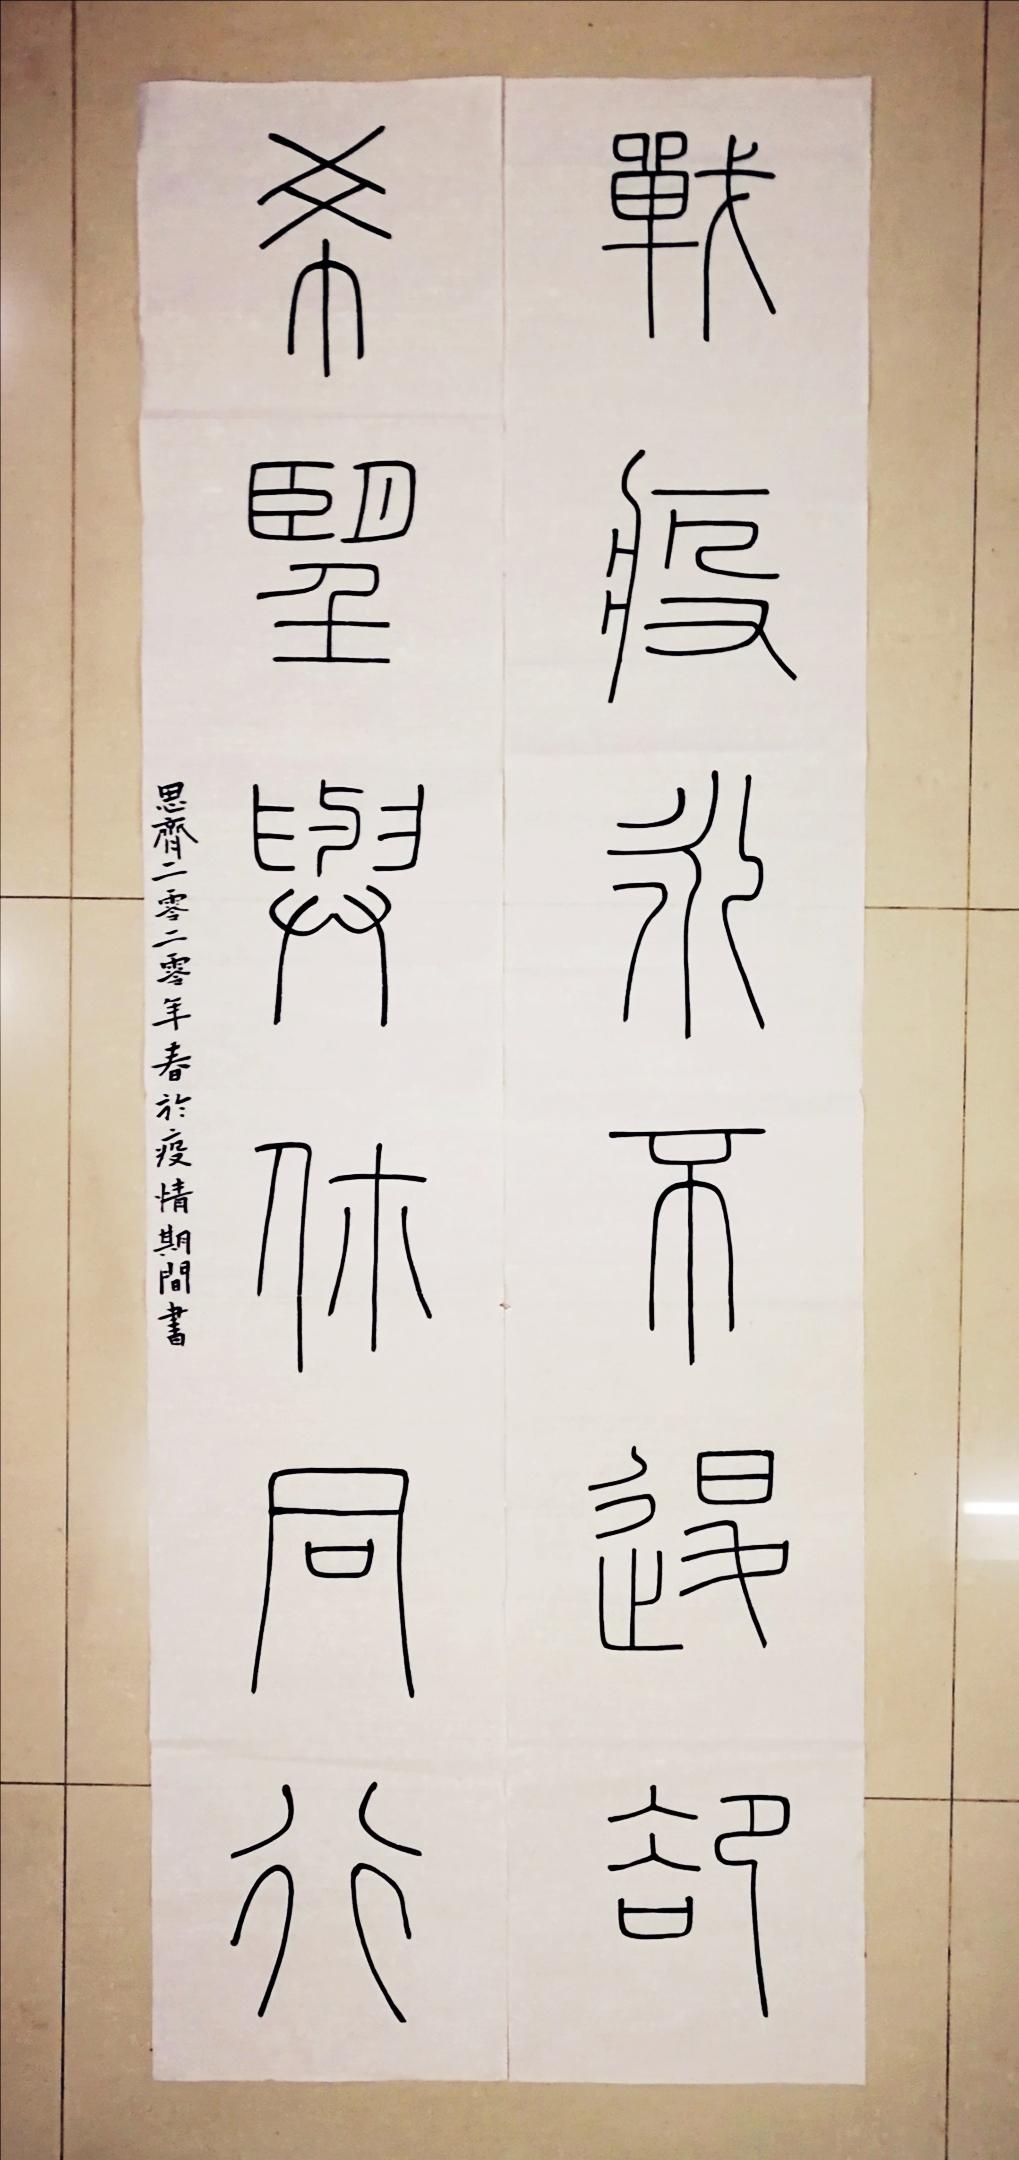 戰疫永不退卻
希望與你同行
思齊二零二零年春於疫情期間書